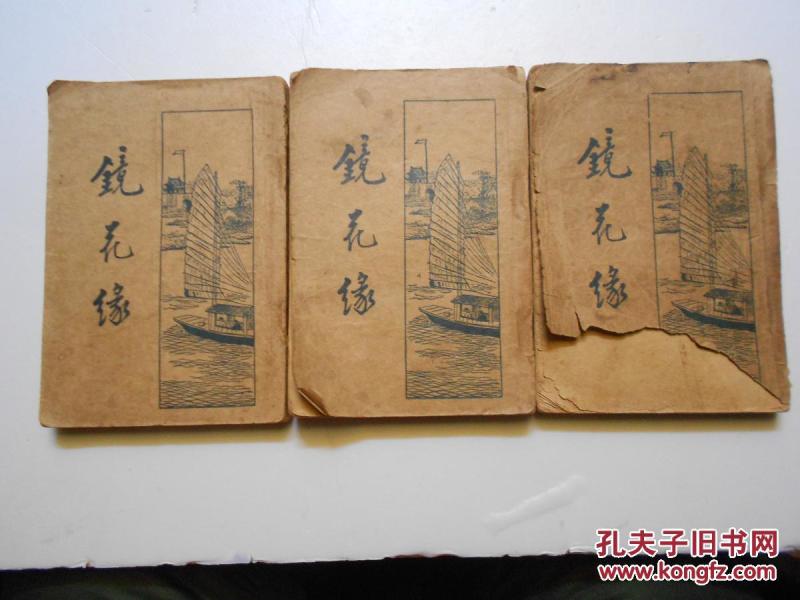 鏡花緣
鏡花緣
鏡花緣
孔夫子旧书网
www.kongfz.com